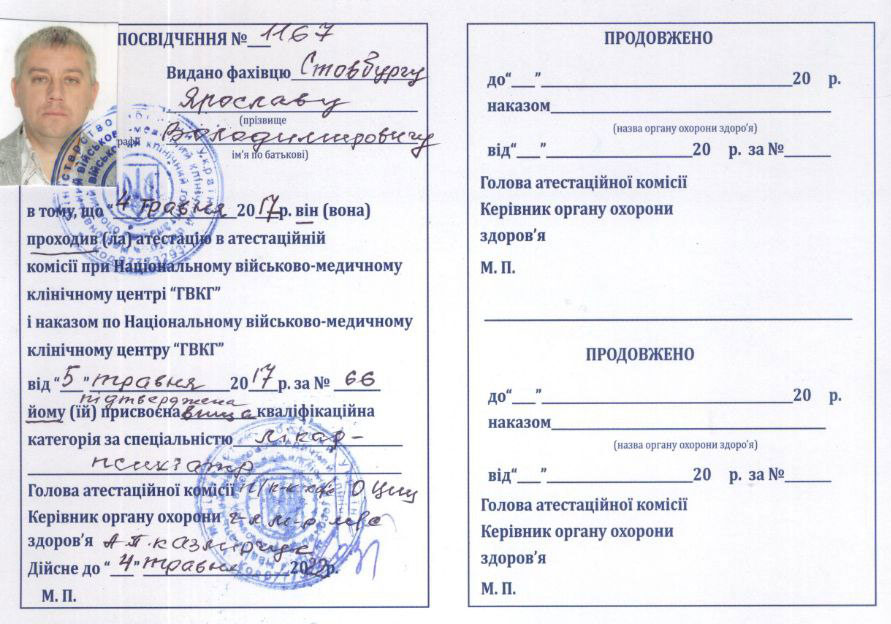 ПОСВІДЧЕННЯ № 1167
Видано фахівцю Стовбургу
Ярославу
(прізвище
Володимировичу
ім'я по батькові)
в тому, що "4 травня 2017р. він (вона)
проходив (ла) атестацію в атестаційній
комісії при Національному військово-медичному
клінічному центрі “ГВКГ”
і наказом по Національному військово-медичному
клінічному центру “ГВКГ”
від “5” травня 2017 р. за № 66
підтверджена
йому (їй) присвоєна вища кваліфікаційна
категорія за спеціальністю лікар-
психіатр
Голова атестаційної комісії
Керівник органу охорони
здоров'я А.П.Казмірчук
Дійсне до “4” травня 2022р.
М. П.
ПРОДОВЖЕНО
до“___”___20 р.
наказом___
(назва органу охорони здоро'я)
від“___”___20 р. за №___
Голова атестаційної комісії
Керівник органу охорони
здоров'я
М. П.
ПРОДОВЖЕНО
до“___”___20 р.
наказом___
(назва органу охорони здоро'я)
від“___”___20 р. за №___
Голова атестаційної комісії
Керівник органу охорони
здоров'я
М. П.